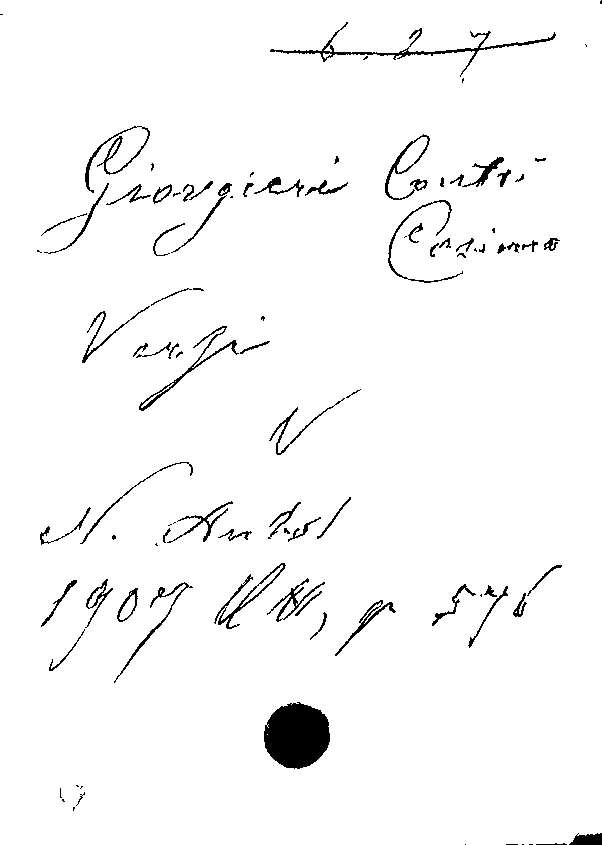 6. 2. 7
Giorgieri Contri
Cosimo
Versi
V
N. Antol
1907
p 576